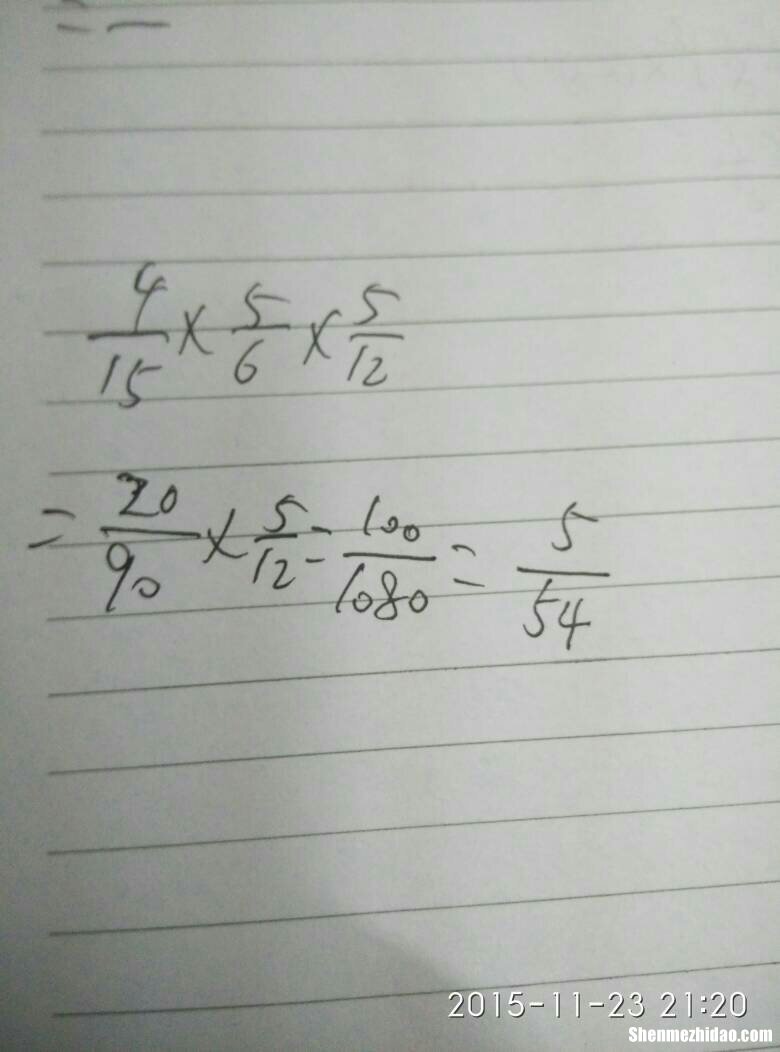 = —
4/15 × 5/6 × 5/12
= 20/90 × 5/12 = 100/1080 = 5/54
2015-11-23 21:20
Shenmezhidao.com